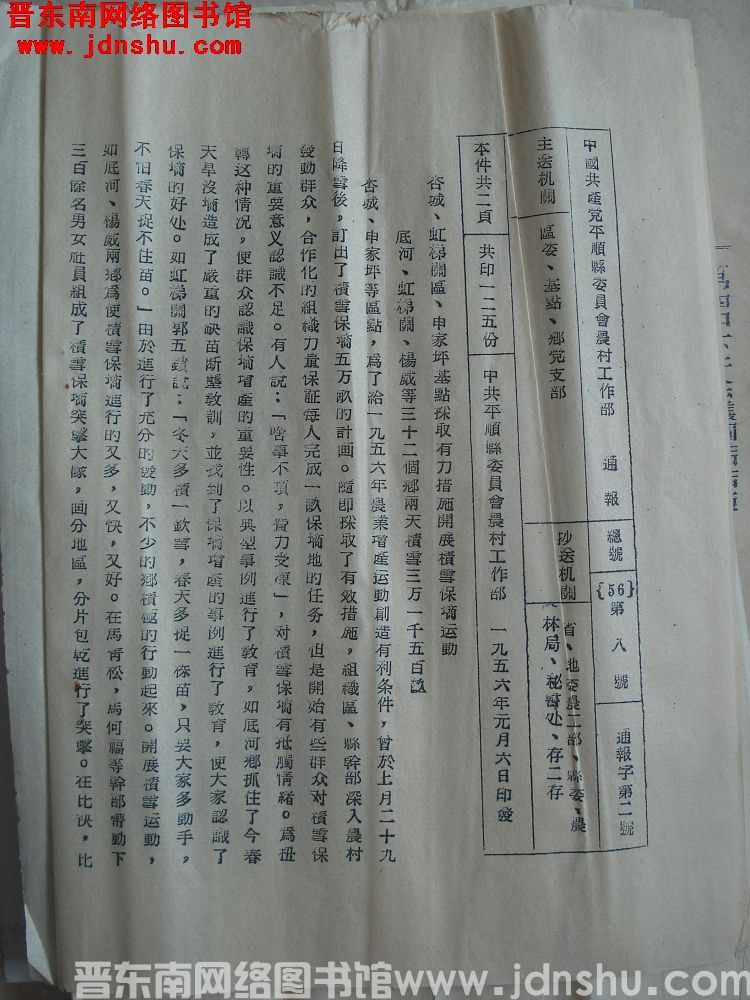 晋东南网络图书馆
www.jdnshu.com
中國共產党平順縣委員會農村工作部 通報 總號 {56}第八號 通報字第二號
主送机關 區委、基點、鄉党支部 抄送机關 省、地委農工部、縣委、農
林局、秘書处、存二存
本件共二頁 共印一二五份 中共平順縣委員會農村工作部 一九五六年元月六日印發
杏城、虹梯關區、申家坪基點採取有力措施開展積雪保墒运動
底河、虹梯關、楊威等三十二個鄉兩天積雪三万一千五百畝
杏城、申家坪等區點，爲了給一九五六年農業增產运動創造有利条件，曾於上月二十九
日降雪後，訂出了積雪保墒五万畝的計画。隨即採取了有效措施，組織區、縣幹部深入農村
發動群众，合作化的組織力量保証每人完成一畝保墒地的任务，但是開始有些群众对積雪保
墒的重要意义認識不足。有人說：「啥事不頂，費力受凍」，对積雪保墒有抵觸情緒。爲扭
轉这种情况，使群众認識保墒增產的重要性。以典型事例進行了教育，如底河鄉抓住了今春
天旱沒墒造成了嚴重的缺苗断壟教訓，並找到了保墒增產的事例進行了教育，使大家認識了
保墒的好处。如虹梯關郭五鎖說：「冬天多積一欽雪，春天多捉一株苗，只要大家多動手，
不怕春天捉不住苗。」由於進行了充分的發動，不少的鄉積極的行動起來。開展積雪运動，
如底河、楊威兩鄉爲使積雪保墒進行的又多，又快，又好。在馬青松，馬何福等幹部帶動下
三百餘名男女社員組成了積雪保墒突擊大隊，画分地區，分片包乾進行了突擊。在比快，比
晋东南网络图书馆www.jdnshu.com